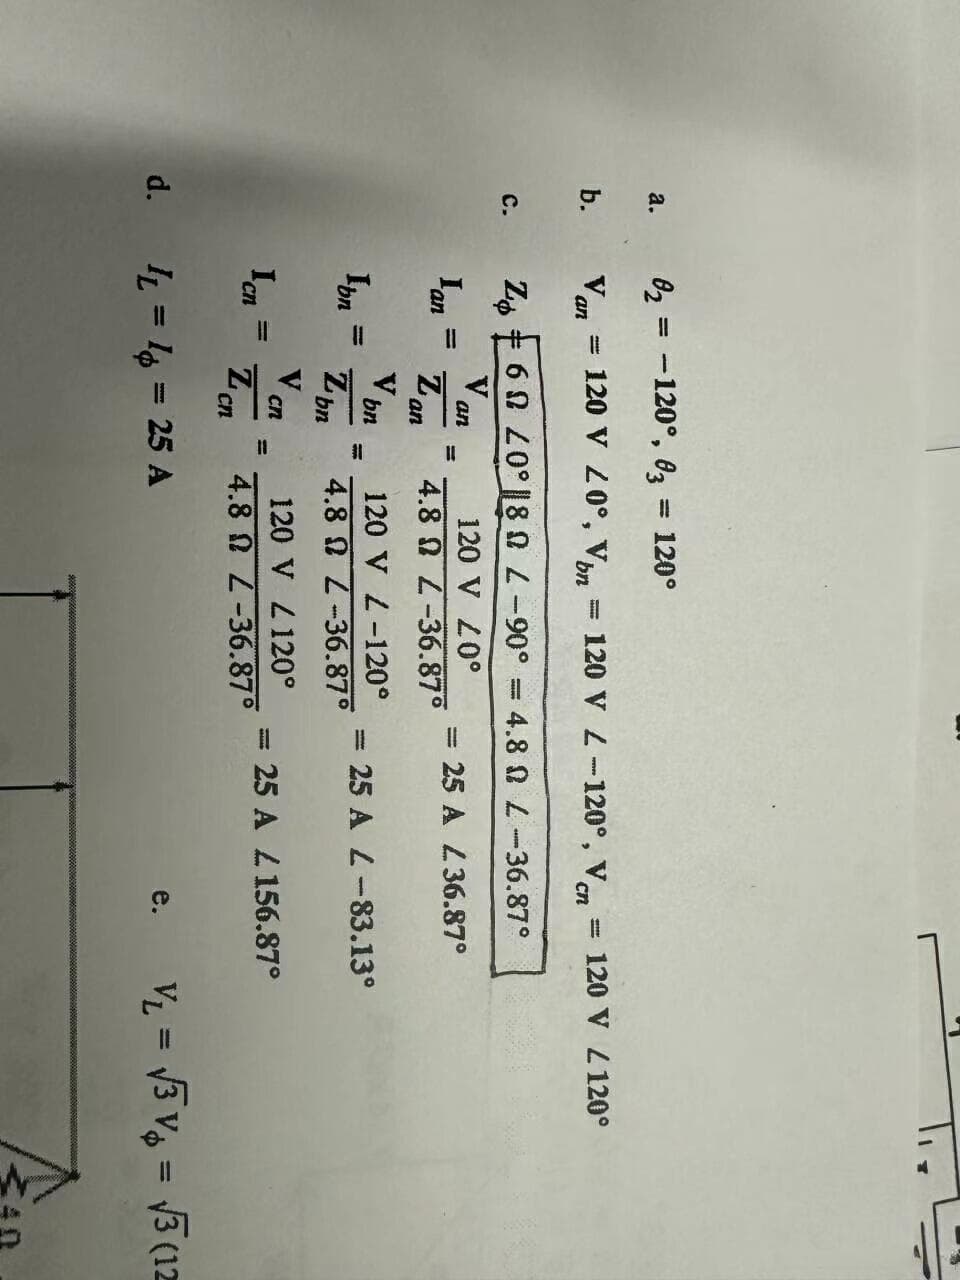 a. θ₂ = −120°, θ₃ = 120°
b. V_an = 120 V ∠0°, V_bn = 120 V ∠−120°, V_cn = 120 V ∠120°
c. Z_ϕ = 6 Ω ∠0° ∥ 8 Ω ∠−90° = 4.8 Ω ∠−36.87°
I_an = V_an / Z_an = 120 V ∠0° / 4.8 Ω ∠−36.87° = 25 A ∠36.87°
I_bn = V_bn / Z_bn = 120 V ∠−120° / 4.8 Ω ∠−36.87° = 25 A ∠−83.13°
I_cn = V_cn / Z_cn = 120 V ∠120° / 4.8 Ω ∠−36.87° = 25 A ∠156.87°
d. I_L = I_ϕ = 25 A
e. V_L = √3 V_ϕ = √3 (12